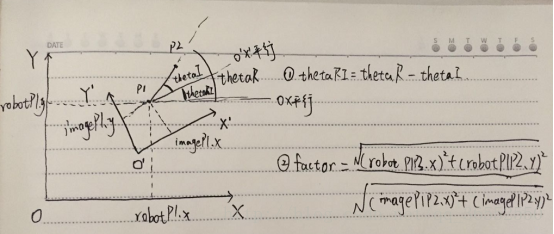 DATE
S M T W T F S
Y
P2
O'X'平行
thetaI
thetaR
① thetaRI = thetaR - thetaI
P1
thetaRI
robotP1.y
Y'
OX平行
imageP1.y
X'
imageP1.x
O'
② factor = √(robotP1P2.x)²+(robotP1P2.y)²
√(imageP1P2.x)²+(imageP1P2.y)²
O
robotP1.x
X